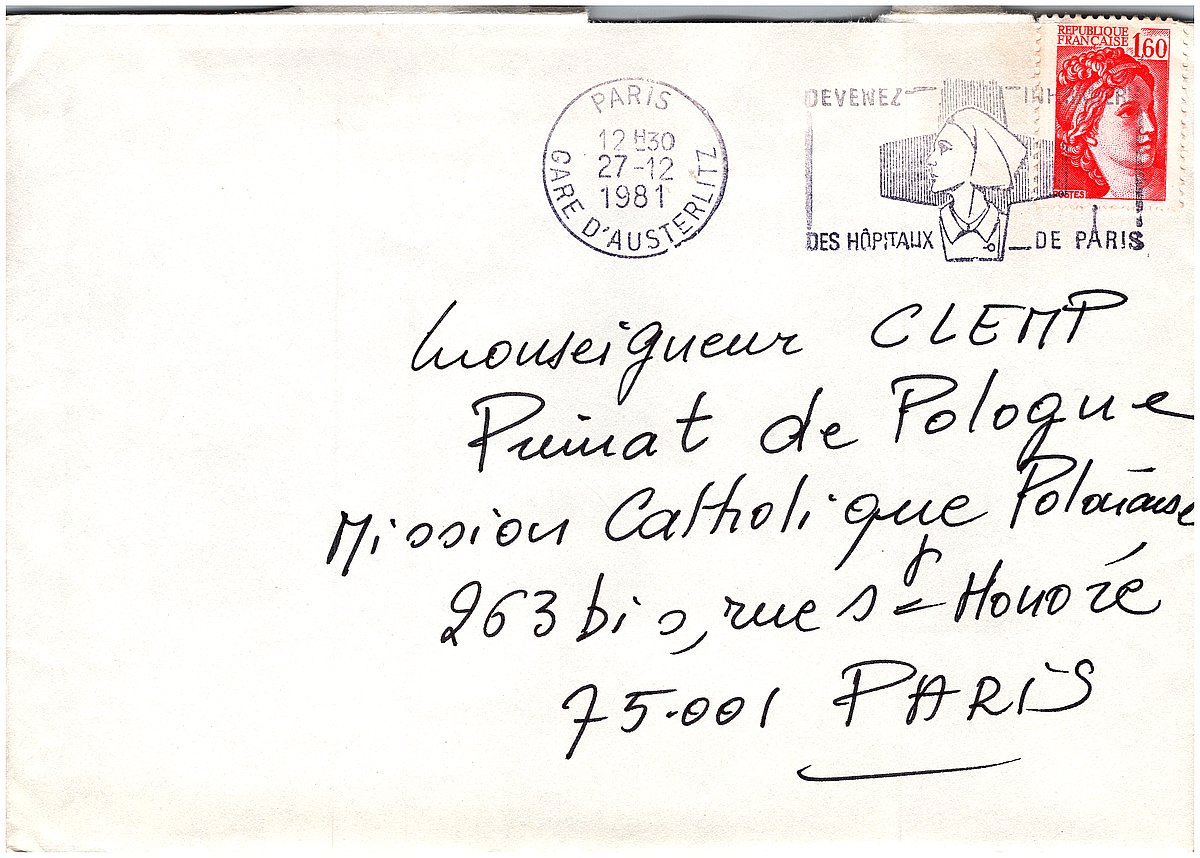 RÉPUBLIQUE
FRANÇAISE 1,60
POSTES
PARIS
12 H30
27-12
1981
GARE D'AUSTERLITZ
DEVENEZ
DES HÔPITAUX DE PARIS
Monseigneur CLEMP
Primat de Pologne
Mission Catholique Polonaise
263 bis, rue St Honoré
75.001 PARIS